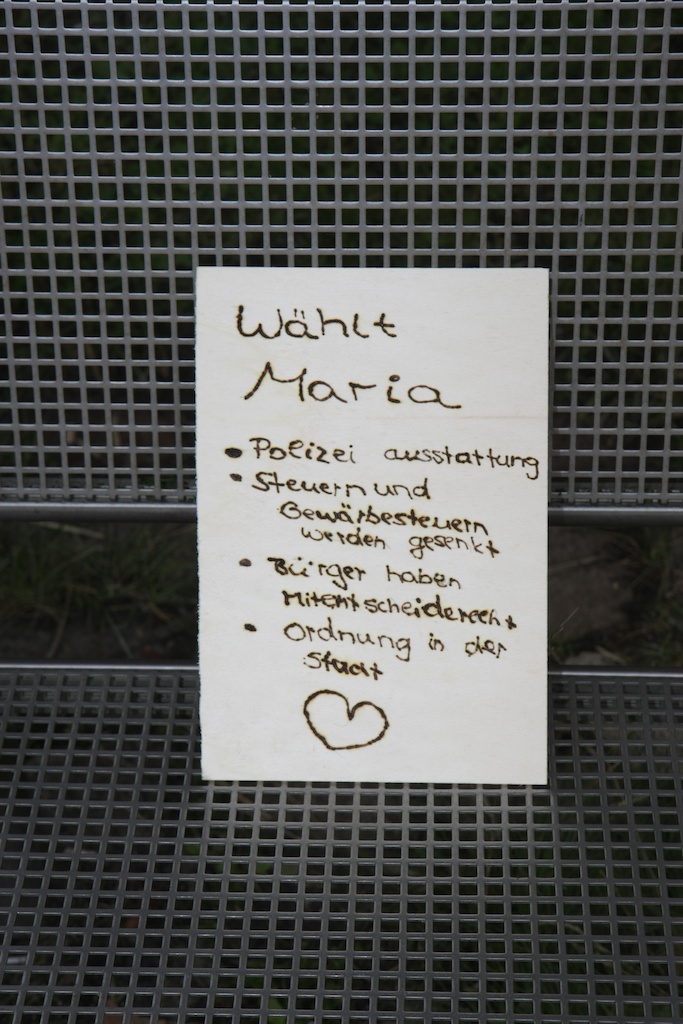 Wählt
Maria
• Polizei ausstattung
• Steuern und
Gewärbesteuern
werden gesenkt
• Bürger haben
Mitentscheiderecht
• Ordnung in der
Stadt